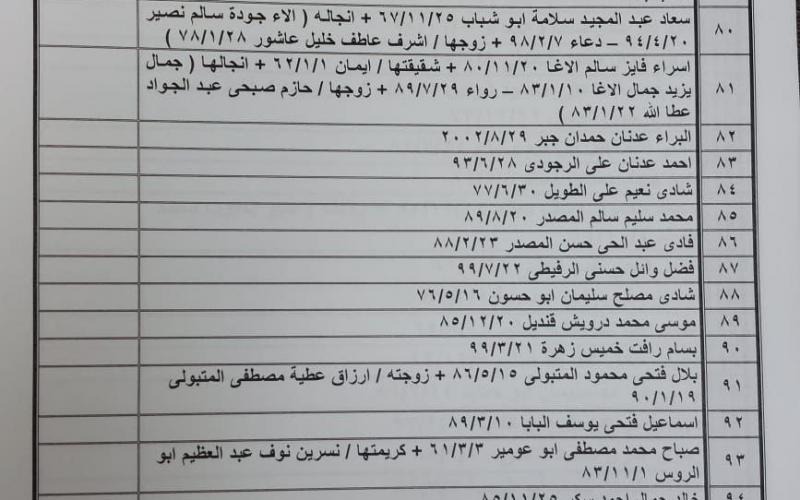 ٨٠ سعاد عبد المجيد سلامة ابو شباب ٦٧/١١/٢٥ + انجاله ( الاء جودة سالم نصير
٩٤/٤/٢٠ – دعاء ٩٨/٢/٧ + زوجها / اشرف عاطف خليل عاشور ٧٨/١/٢٨ )
٨١ اسراء فايز سالم الاغا ٨٠/١١/٢٠ + شقيقتها / ايمان ٦٢/١/١ + انجالها ( جمال
يزيد جمال الاغا ٨٣/١/١٠ – رواء ٨٩/٧/٢٩ + زوجها / حازم صبحى عبد الجواد
عطا الله ٨٣/١/٢٢ )
٨٢ البراء عدنان حمدان جبر ٢٠٠٢/٨/٢٩
٨٣ احمد عدنان على الرجودى ٩٣/٦/٢٨
٨٤ شادى نعيم على الطويل ٧٧/٦/٣٠
٨٥ محمد سليم سالم المصدر ٨٩/٨/٢٠
٨٦ فادى عبد الحى حسن المصدر ٨٨/٢/٢٣
٨٧ فضل وائل حسنى الرفيطى ٩٩/٧/٢٢
٨٨ شادى مصلح سليمان ابو حسون ٧٦/٥/١٦
٨٩ موسى محمد درويش قنديل ٨٥/١٢/٢٠
٩٠ بسام رافت خميس زهرة ٩٩/٣/٢١
٩١ بلال فتحى محمود المتبولى ٨٦/٥/١٥ + زوجته / ارزاق عطية مصطفى المتبولى
٩٠/١/١٩
٩٢ اسماعيل فتحى يوسف البابا ٨٩/٣/١٠
٩٣ صباح محمد مصطفى ابو عومير ٦١/٣/٣ + كريمتها / نسرين نوف عبد العظيم ابو
الروس ٨٣/١١/١
٩٤ خالد جمال احمد ٨٥/١١/٢٥